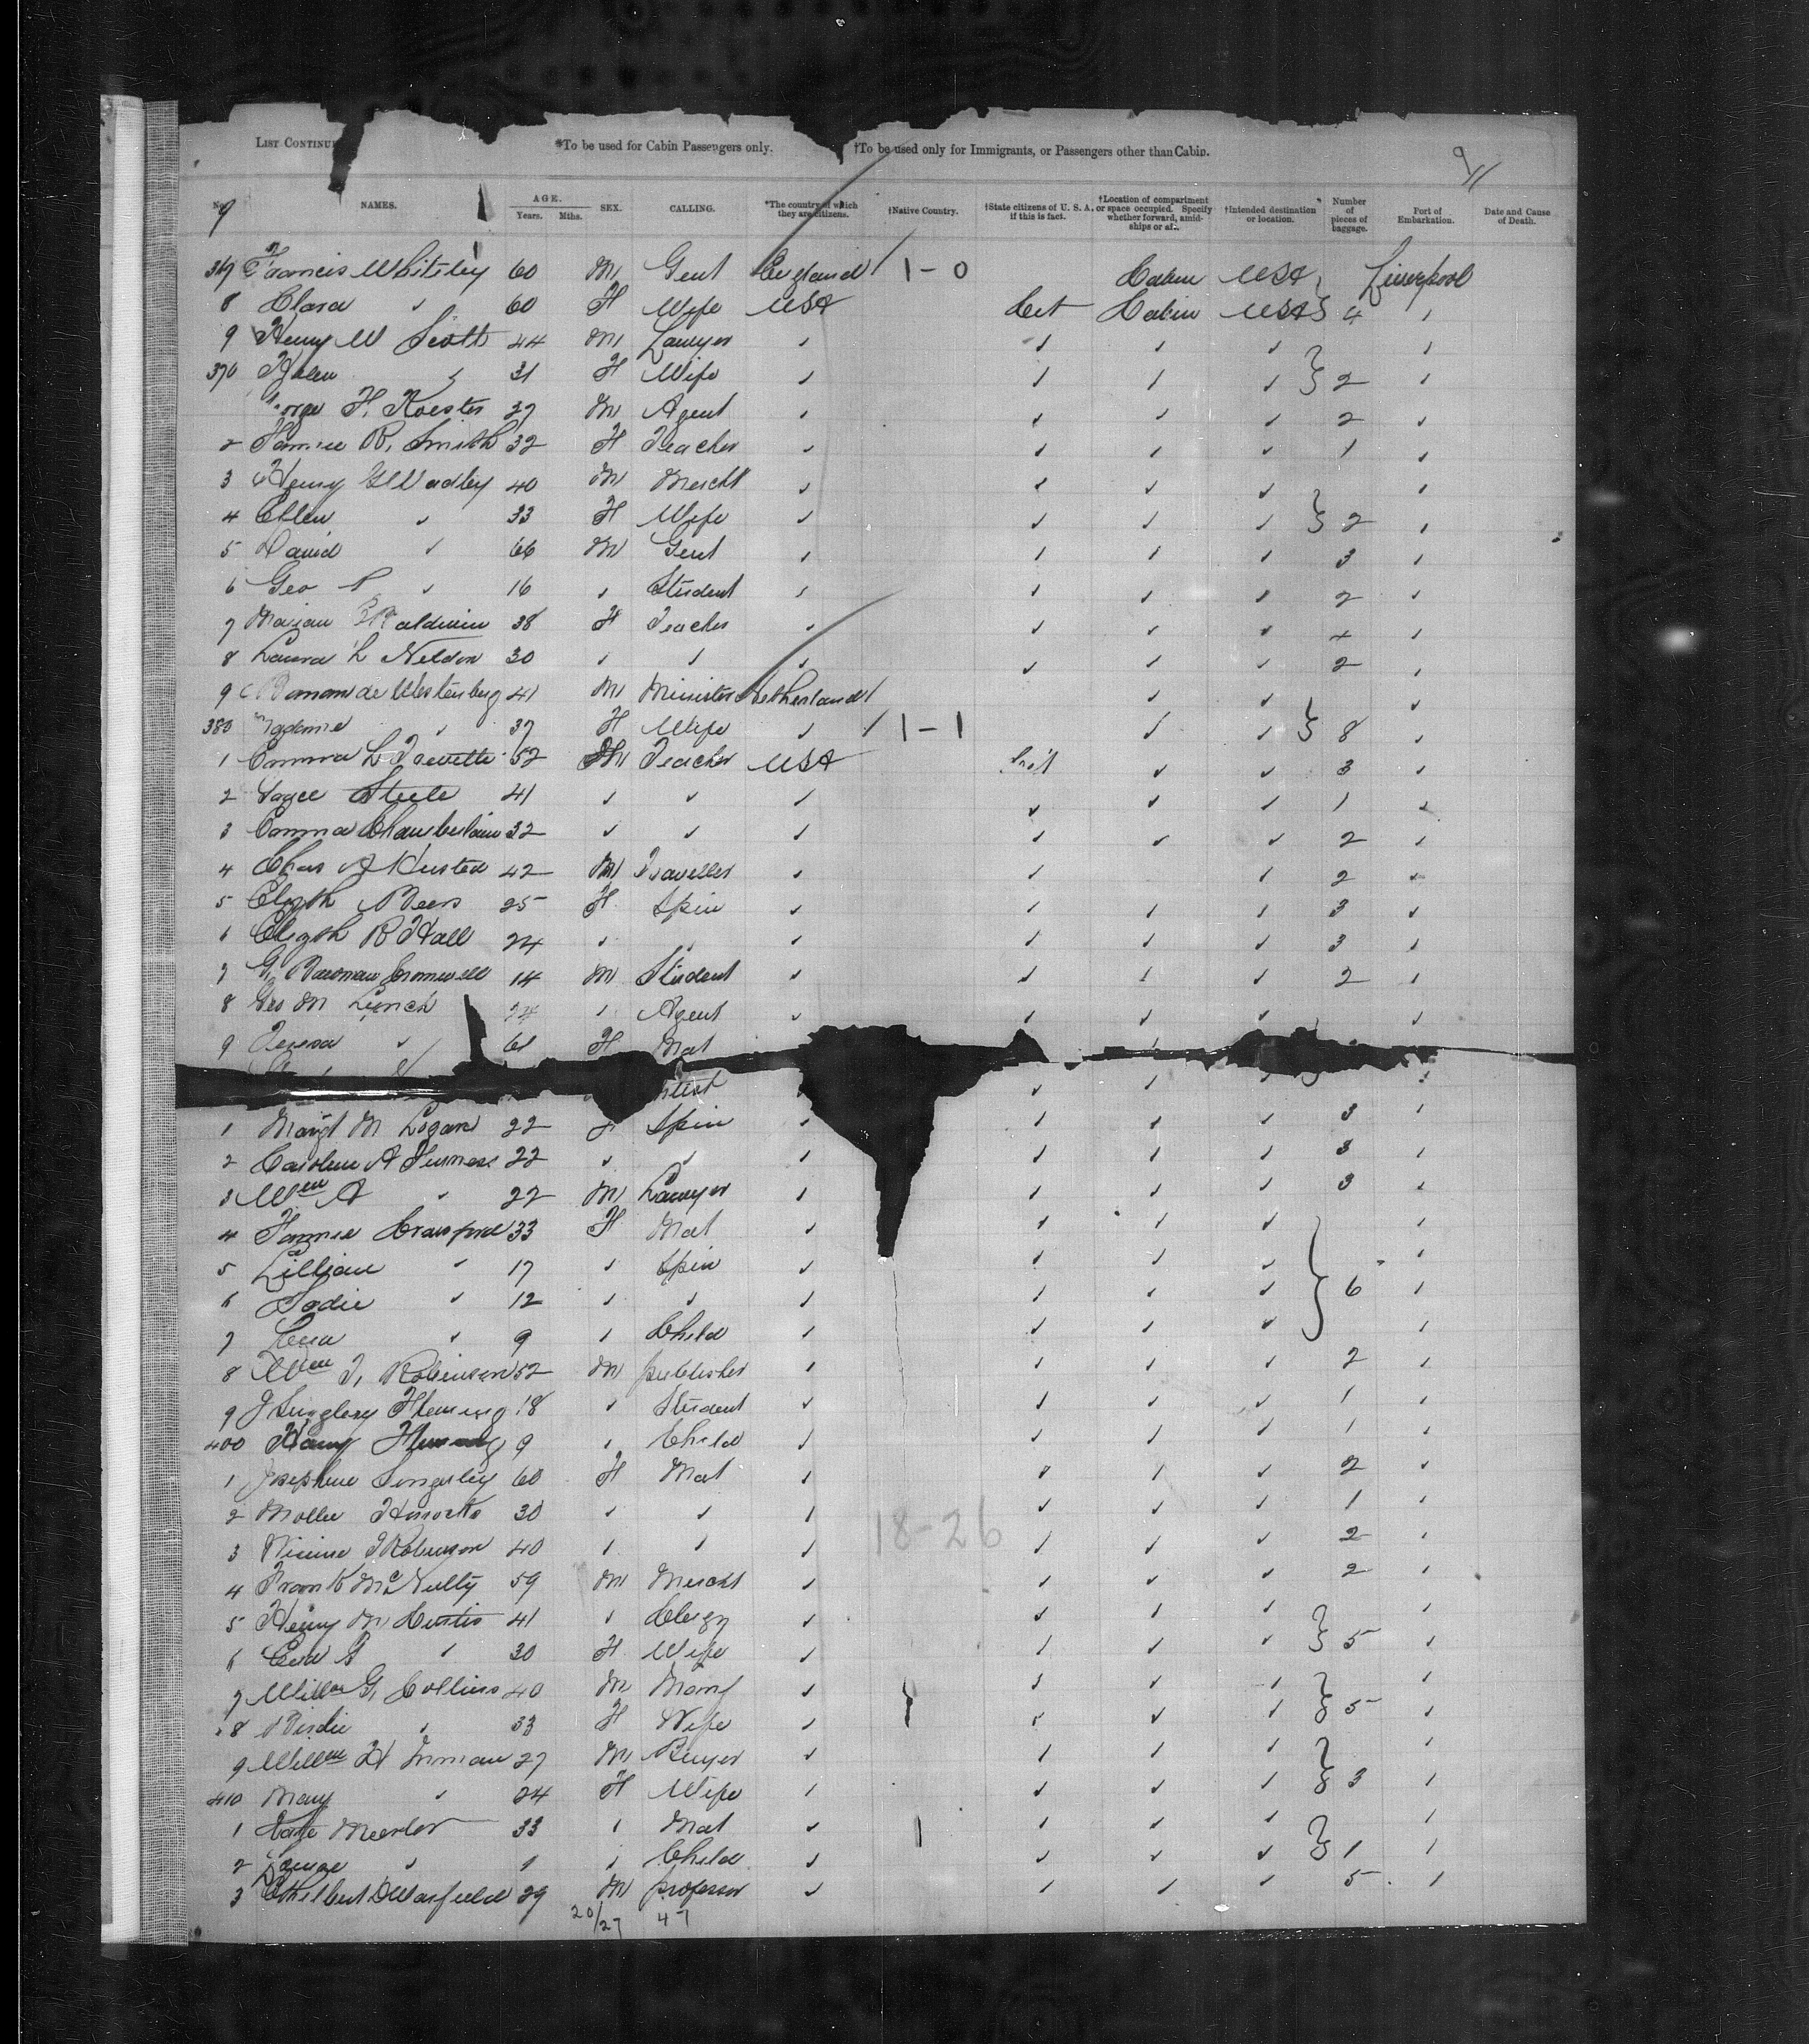 LIST CONTINUE
*To be used for Cabin Passengers only.
†To be used only for Immigrants, or Passengers other than Cabin.
9
No. NAMES. AGE. Years. Mths. SEX. CALLING. *The country of which they are citizens. †Native Country. †State citizens of U. S. A. if this is fact. †Location of compartment or space occupied. Specify whether forward, amidships or aft. †Intended destination or location. Number of pieces of baggage. Port of Embarkation. Date and Cause of Death.
9
367 Francis Whitsley 60 M Gent England 1-0 Cabin USA Liverpool
8 Clara " 60 F Wife USA Cit Cabin USA 4 "
9 Henry W Scott 44 M Lawyer " " " " "
370 Helen " 31 F Wife " " " " 2 "
orge F. Koester 27 M Agent " " " " 2 "
2 Fannie R. Smith 32 F Teacher " " " " 1 "
3 Henry Wadley 40 M Mercht " " " " "
4 Ellen " 33 F Wife " " " " 2 "
5 David " 66 M Gent " " " " 3 "
6 Geo " 16 " Student " " " " 2 "
7 Marian Baldwin 38 F Teacher " " " " "
8 Laura L Neldon 30 " " " " " " 2 "
9 de Westenberg 41 M Minister Netherland " " "
380 Madame " 37 F Wife " 1-1 " " 8 "
1 Emma L 52 Teacher USA " " 3 "
2 Steele 41 " " " " " " 1 "
3 Emma Chamberlain 32 " " " " " " 2 "
4 Chas A Husted 42 M Traveller " " " 2 "
5 Elizth Beers 25 F Spin " " " " 3 "
6 Elizth R Hall 24 " " " " " " 3 "
7 G. Bowman Cromwell 14 M Student " " " " 2 "
8 Geo M Lynch 24 " Agent " " " " "
9 Teresa " 61 F Mat "
" " " "
1 Margt M Logan 22 F Spin " " " " 3 "
2 Caroline A Furness 22 " " " " " " 3 "
3 Wm A " 22 M Lawyer " " " " 3 "
4 Fannie Crawford 33 F Mat " " " " "
5 Lillian " 17 " Spin " " " " "
6 Sadie " 12 " " " " " " 6 "
7 " 9 " Child " " " " "
8 Wm T. Robinson 52 M publisher " " " " 2 "
9 J Singlery Fleming 18 " Student " " " " 1 "
400 Harry Fleming 9 " Child " " " " 1 "
1 Josephine Singerley 60 F Mat " " " " 2 "
2 Mollie Horrocks 30 " " " " " " 1 "
18-26
3 Robinson 40 " " " " " " 2 "
4 Frank McNulty 59 M Mercht " " " " 2 "
5 Henry M Curtis 41 " Clergy " " " " "
6 Eva G " 30 F Wife " " " " 5 "
7 Willm G. Collins 40 M Manf " " " " "
8 Birdie " 33 F Wife " " " " 5 "
9 Willm H Inman 27 M Buyer " " " " "
410 Mary " 24 F Wife " " " " 3 "
1 Kate 33 " Mat " " " " "
2 Louise " 1 " Child " " " " 1 "
3 Ethelbert D Warfield 29 M professor " " " " 5 "
20/27 47